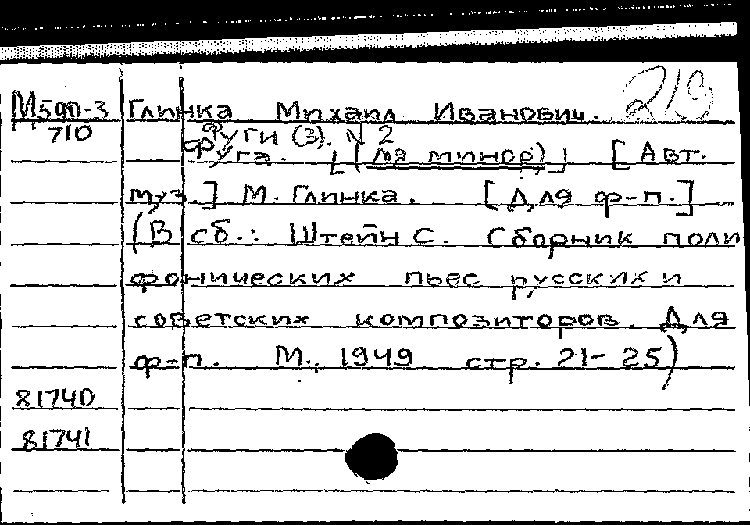 М590-3 Глинка Михаил Иванович. 219
710 Фуги (3). N 2
Фуга. [(ля минор)] [Авт.
муз.] М. Глинка. [Для ф-п.]
(В сб.: Штейн С. Сборник поли
фонических пьес русских и
советских композиторов. Для
ф-п. М., 1949 стр. 21-25)
81740
81741